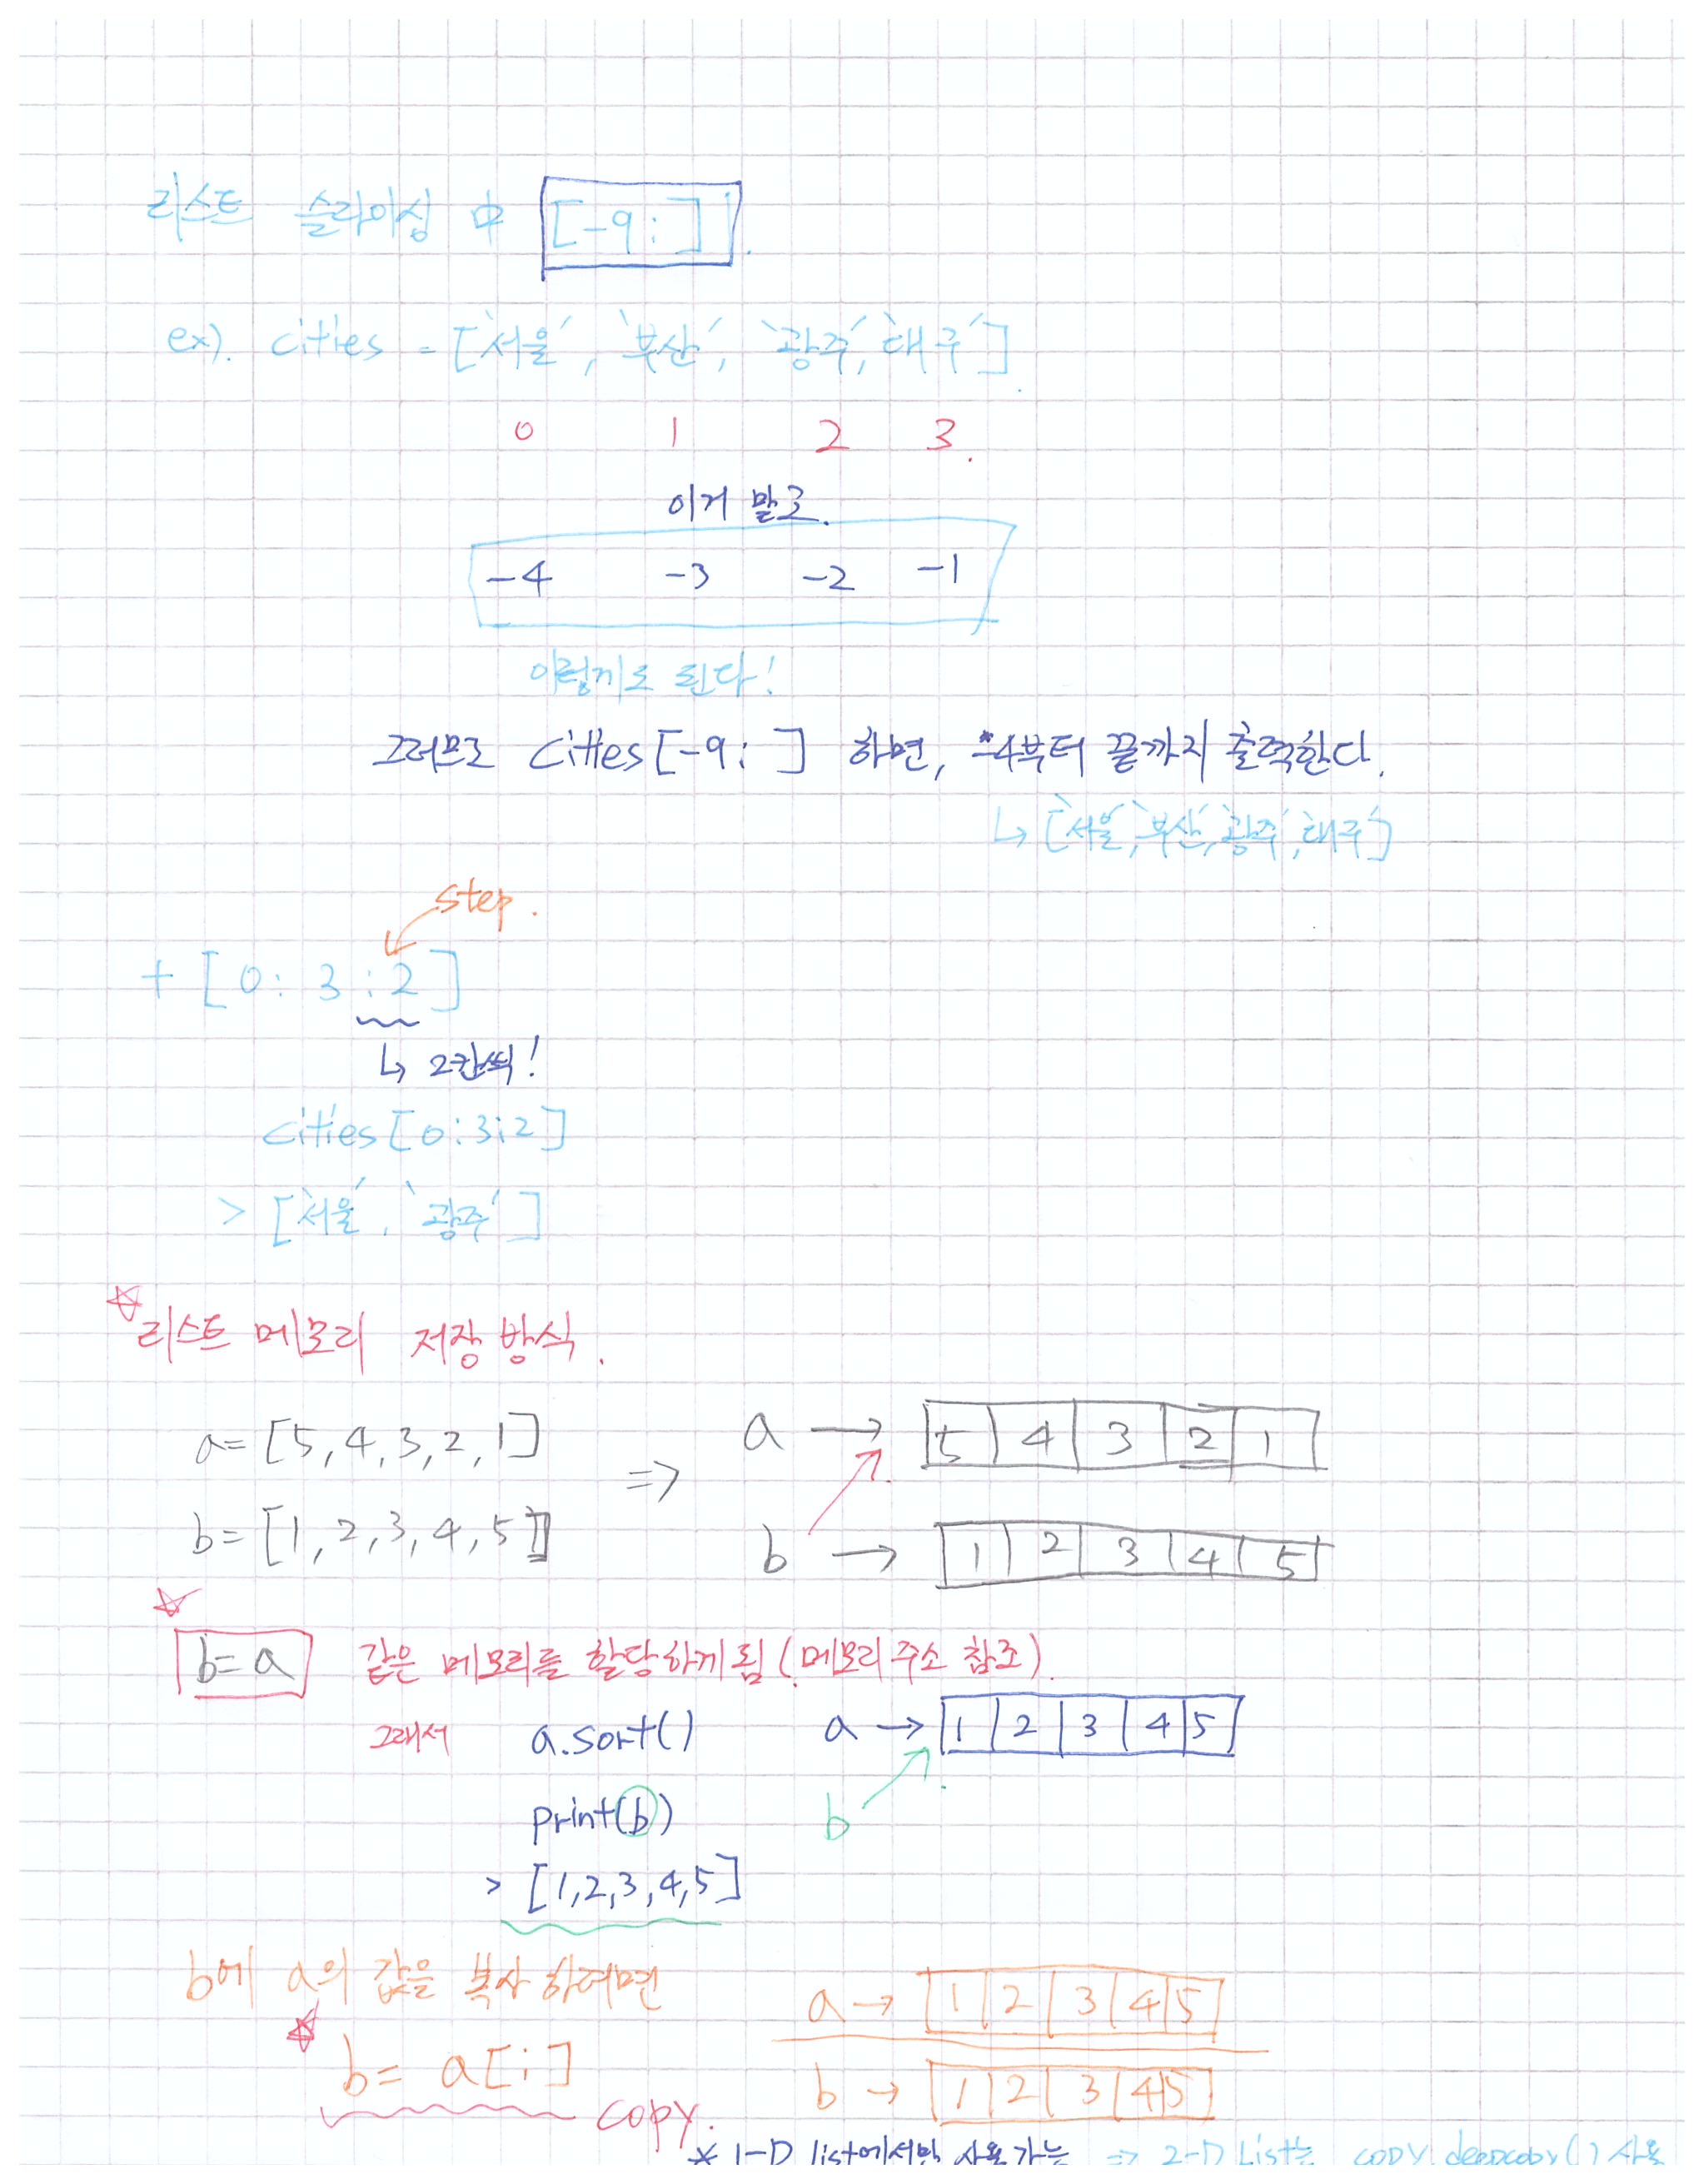 리스트 슬라이싱 中 [-9: ].
ex). cities = ['서울', '부산', '광주', '대구'].
0 1 2 3.
이거 말고.
-4 -3 -2 -1
이렇게도 된다!
그러므로 cities[-9: ] 하면, -4부터 끝까지 출력한다.
↳ ['서울', '부산', '광주', '대구']
step.
+ [0: 3 :2]
↳ 2칸씩!
cities[0:3:2]
> ['서울', '광주']
☆ 리스트 메모리 저장 방식.
a= [5,4,3,2,1] => a → 5 4 3 2 1
b= [1,2,3,4,5] b → 1 2 3 4 5
☆ b=a 같은 메모리를 할당하게 됨 (메모리 주소 참조).
그래서 a.sort() a → 1 2 3 4 5
print(b) b
> [1,2,3,4,5]
b에 a의 값을 복사 하려면 a → 1 2 3 4 5
☆ b= a[:] b → 1 2 3 4 5
copy.
* 1-D list에서만 사용가능 => 2-D List는 copy.deepcopy() 사용